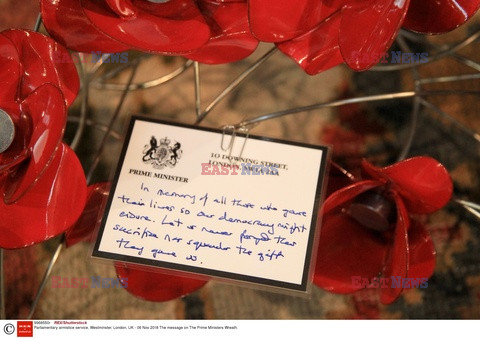 PRIME MINISTER
10 DOWNING STREET
LONDON, SW1A 2AA
In memory of all those who gave
their lives so our democracy might
endure. Let us never forget their
sacrifice nor squander the gift
they gave us.
EASTNEWS
EASTNEWS
EASTNEWS
EASTNEWS
EASTNEWS
9988500/ REX/Shutterstock
Parliamentary armistice service, Westminster, London, UK - 06 Nov 2018 The message on The Prime Ministers Wreath